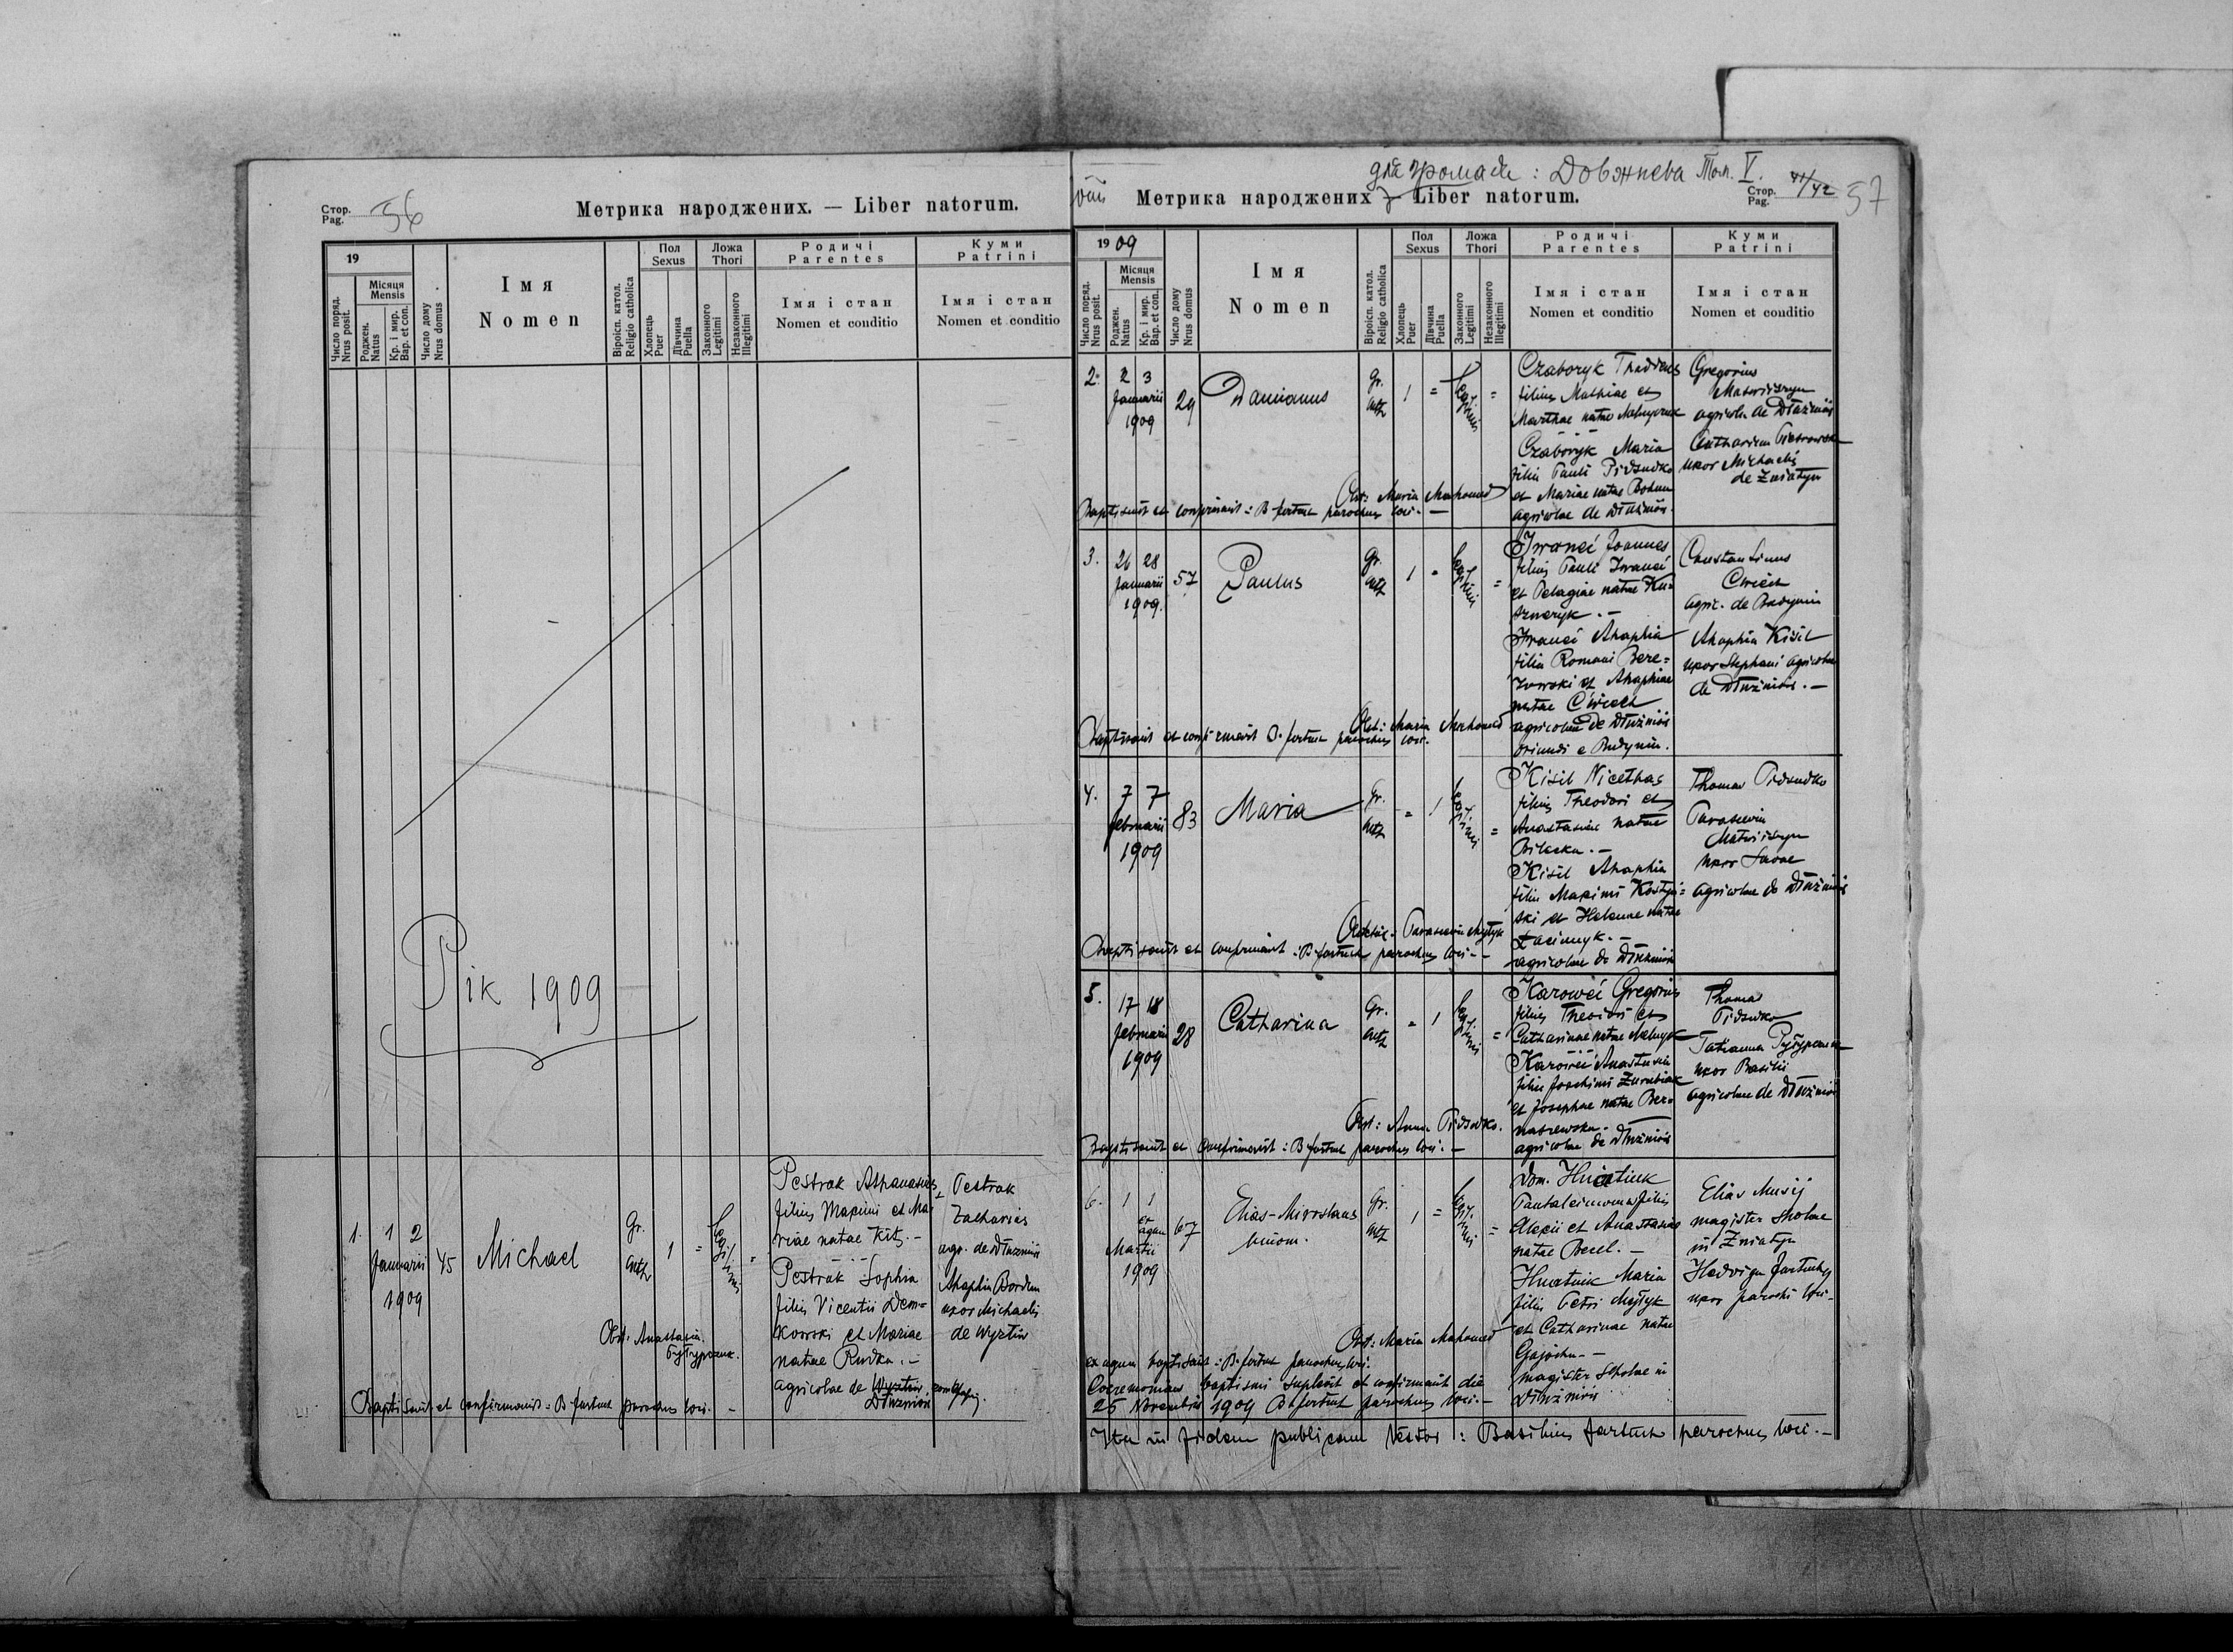 Стор.
Pag. 56
Метрика народжених. — Liber natorum.
19
Число поряд.
Nrus posit.
Місяця
Mensis
Роджен.
Natus
Кр. і мир.
Bap. et con.
Число дому
Nrus domus
Імя
Nomen
Віроісп. катол.
Religio catholica
Пол
Sexus
Хлопець
Puer
Дївчина
Puella
Ложа
Thori
Законного
Legitimi
Незаконного
Illegitimi
Родичі
Parentes
Імя і стан
Nomen et conditio
Куми
Patrini
Імя і стан
Nomen et conditio
Рік 1909
1. 1 2
Januarii
1909
45
Michael
Gr.
cath
1 =
Legitimi
=
Pestrak Athanasius
filius Maximi et Ma-
riae natae Kit. -
Pestrak Sophia
filia Vicentii Dem-
kowski et Mariae
natae Rudka. -
agricolae de
Dłużniów
Pestrak
Zacharias
agr. de Dłużniów
Ahaphia Bordun
uxor Michaelis
de Wyżłów
Obst. Anastasia
Baptisavit et confirmavit: B Fartuch parochus loci. -
для громади: Довжнева Том. V.
Метрика народжених — Liber natorum.
Стор.
Pag. 41/42 57
1909
Число поряд.
Nrus posit.
Місяця
Mensis
Роджен.
Natus
Кр. і мир.
Bap. et con.
Число дому
Nrus domus
Імя
Nomen
Віроісп. катол.
Religio catholica
Пол
Sexus
Хлопець
Puer
Дївчина
Puella
Ложа
Thori
Законного
Legitimi
Незаконного
Illegitimi
Родичі
Parentes
Імя і стан
Nomen et conditio
Куми
Patrini
Імя і стан
Nomen et conditio
2. 2 3
Januarii
1909
29
Damianus
Gr.
cath
1 =
Legitimi
=
Czaboryk Thaddeus
filius Mathiae et
Marthae natae
Czaboryk Maria
filia Pauli Pidsudko
et Mariae natae Bodnar
agricolae de Dłużniów.
Gregorius
Matwiiszyn
agricola de Dłużniów
Catharina
uxor Michaelis
de Żniatyn
Obst: Maria
Baptisavit et confirmavit: B Fartuch parochus loci. -
3. 26 28
Januarii
1909.
57
Paulus
Gr.
cath
1 =
Legitimi
=
Iwanei Joannes
filius Pauli Iwanei
et Pelagiae natae Ku-
szneryk. -
Iwanei Ahaphia
filia Romani Bere-
zowski et Ahaphiae
natae Ćwiech
agricolae de Dłużniów
oriundi e Budynin.
Constantinus
Ćwiech
agric. de Budynin
Ahaphia Kisil
uxor Stephani agricolae
de Dłużniów. -
Obst: Maria
Baptisavit et confirmavit B. Fartuch parochus loci.
4. 7 7
Februarii
1909
83
Maria
Gr.
cath
= 1
Legitimi
=
Kisil Nicethas
filius Theodori et
Anastasiae natae
Bilecka. -
Kisil Ahaphia
filia Maximi Kostyń-
ski et Helenae natae
agricolae de Dłużniów
Thomas Pidsudko
Parascevia
Matwiiszyn
uxor Savae
agricolae de Dłużniów
Parascevia Mytyk
Baptisavit et confirmavit: B Fartuch parochus loci. -
5. 17 18
Februarii
1909
28
Catharina
Gr.
cath
= 1
Legitimi
=
Karowei Gregorius
filius Theodori et
Catharinae natae Melnyk
Karowei Anastasia
filia Joachimi Żurabiak
et Josephae natae Ber-
narewska.
agricolae de Dłużniów
Thomas
Pidsudko
Tatianna
uxor Basilii
agricolae de Dłużniów
Obst: Anna Pidsudko.
Baptisavit et confirmavit: B Fartuch parochus loci. -
6. 1 1
ex
aqua
Martii
1909
67
Elias-Miroslaus
binom.
Gr.
cath
1 =
Legitimi
=
Dom. Hnatiuk
Pantaleimon filius
Alexii et Anastasiae
natae Besel. -
Hnatiuk Maria
filia Petri Mytyk
et Catharinae natae
Gajocha. -
magister scholae in
Dłużniów
Elias Musij
magister scholae
in Żniatyn
Hedvigis Fartuch
uxor parochi loci. -
Obst: Maria
ex aqua baptisavit: B. Fartuch parochus loci.
Caeremonias baptismi suplevit et confirmavit die
25 Novembris 1909 B Fartuch parochus loci. -
Ita in fidem publicam testor: Basilius Fartuch parochus loci. -